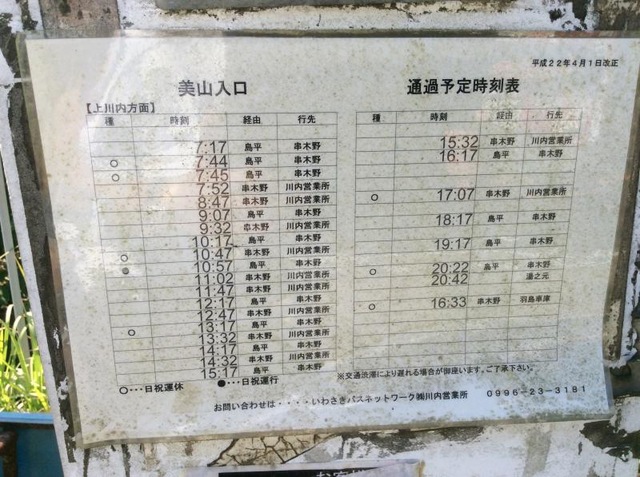 平成22年4月1日改正
美山入口 通過予定時刻表
【上川内方面】
種 時刻 経由 行先
7:17 島平 串木野
○ 7:44 島平 串木野
○ 7:45 島平 串木野
7:52 串木野 川内営業所
8:47 串木野 川内営業所
9:07 島平 串木野
9:32 串木野 川内営業所
10:17 島平 串木野
○ 10:47 串木野 川内営業所
● 10:57 島平 串木野
11:02 串木野 川内営業所
11:47 串木野 川内営業所
12:17 島平 串木野
12:47 串木野 川内営業所
13:17 島平 串木野
○ 13:32 串木野 川内営業所
14:17 島平 串木野
14:32 串木野 川内営業所
15:17 島平 串木野
種 時刻 経由 行先
15:32 串木野 川内営業所
16:17 島平 串木野
○ 17:07 串木野 川内営業所
18:17 島平 串木野
19:17 島平 串木野
○ 20:22 島平 串木野
20:42 湯之元
○ 16:33 串木野 羽島車庫
○・・・日祝運休 ●・・・日祝運行
※交通渋滞により遅れる場合が御座います。ご了承下さい。
お問い合わせは・・・・いわさきバスネットワーク㈱川内営業所 0996-23-3181